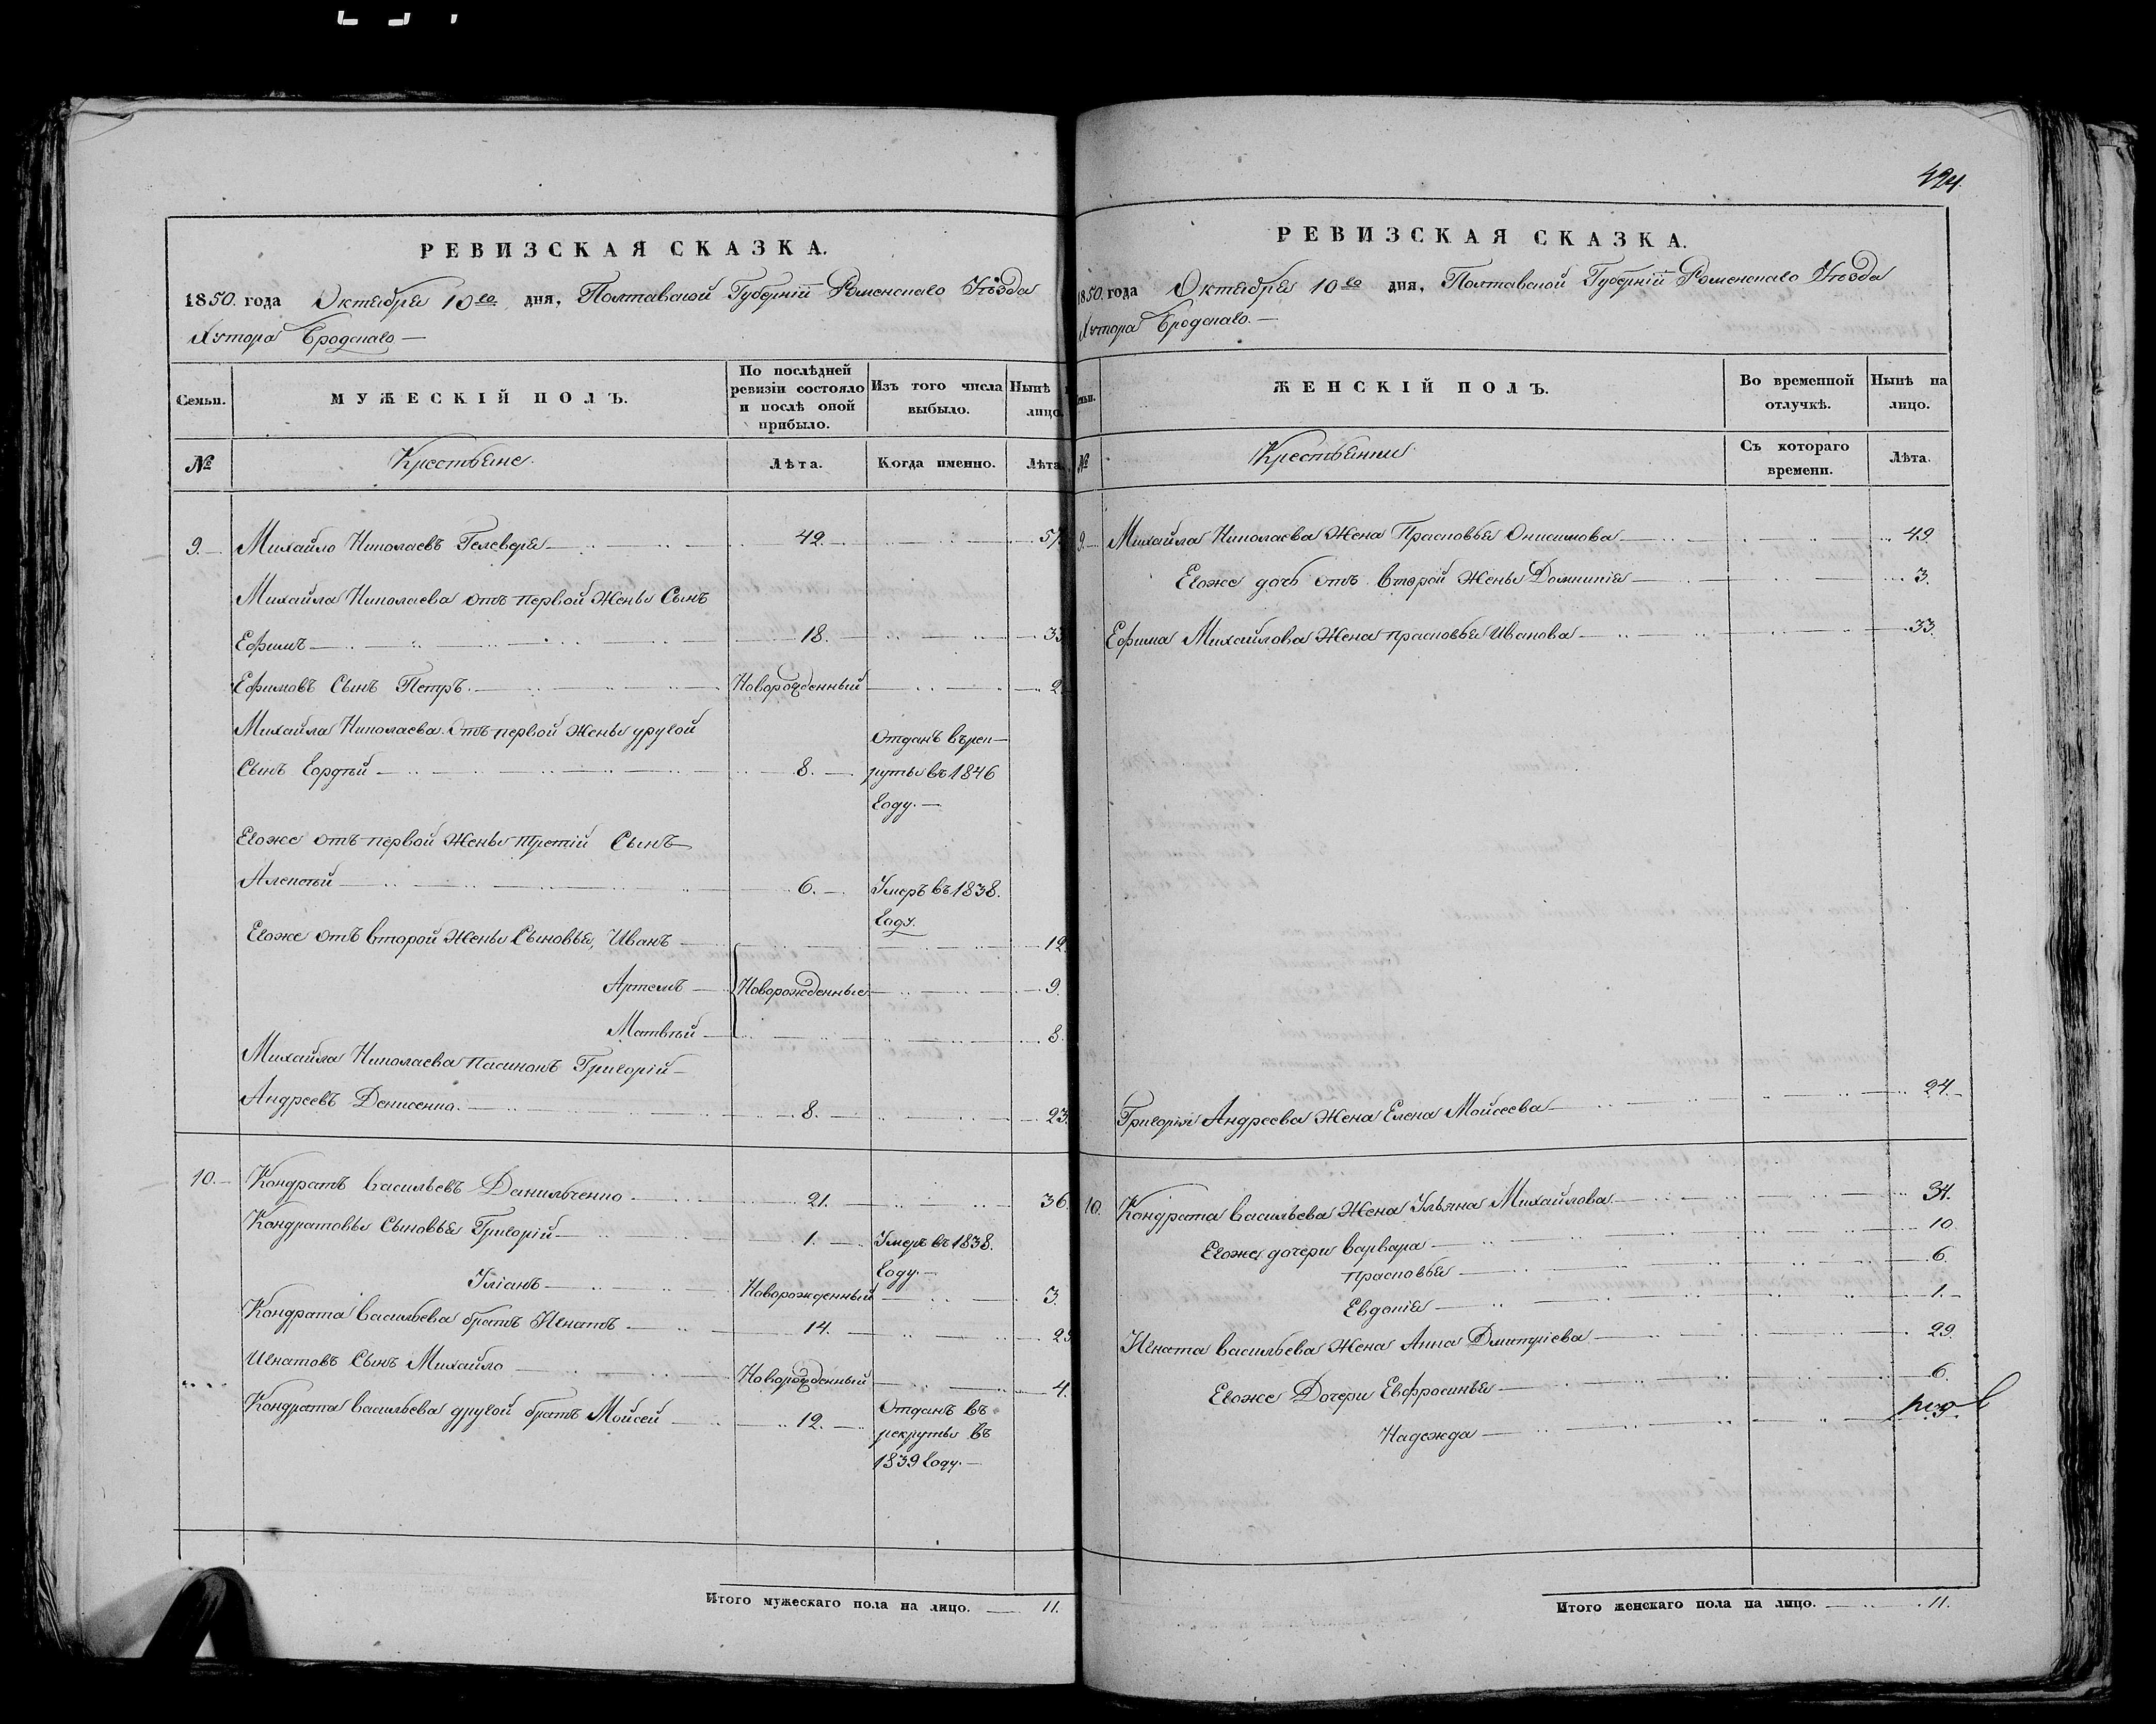 РЕВИЗСКАЯ СКАЗКА.
1850. года Октября 10го дня, Полтавской Губерніи Роменскаго Уѣзда
Хутора Бродскаго.—
Семьи.
МУЖЕСКІЙ ПОЛЪ.
По послѣдней ревизіи состояло и послѣ оной прибыло.
Изъ того числа выбыло.
Нынѣ
лицо.
№
Крестьяне.
Лѣта.
Когда именно.
Лѣта.
9. Михайло Николаевъ Гелеверя 42. 57.
Михайла Николаева отъ первой жены Сынъ
Ефимъ 18. 33
Ефимовъ Сынъ Петръ. Новорожденный 2.
Михайла Николаева отъ первой жены другой
Сынъ Гордѣй 8. Отданъ въ рекруты въ 1846 году.
Егоже отъ первой жены третій Сынъ
Алексѣй 6. Умеръ въ 1838. году.
Егоже отъ второй жены Сыновья, Иванъ 12.
Артемъ Новорожденные 9.
Матвѣй 8.
Михайла Николаева пасинокъ Григорій
Андреевъ Денисенко. 8. 23.
10. Кондратъ Васильевъ Данильченко 21. 36.
Кондратовы Сыновья Григорій 1. Умеръ въ 1838. году.
Уліанъ Новорожденный 3.
Кондрата Васильева братъ Игнатъ 14. 29
Игнатовъ Сынъ Михайло Новорожденный 4.
Кондрата Васильева другой братъ Мойсей 12. Отданъ въ рекруты въ 1839 году.
Итого мужескаго пола на лицо. 11.
РЕВИЗСКАЯ СКАЗКА.
1850. года Октября 10го дня, Полтавской Губерніи Роменскаго Уѣзда
Хутора Бродскаго.—
ЖЕНСКІЙ ПОЛЪ.
Во временной отлучкѣ.
Нынѣ на лицо.
№
Крестьянки
Съ котораго времени.
Лѣта.
9. Михайла Николаева Жена Прасковья Онисимова 49.
Егоже дочь отъ второй жены Домникія 3.
Ефима Михайлова Жена прасковья Иванова 33.
Григорія Андреева Жена Елена Мойсеева 24.
10. Кондрата Васильева Жена Ульяна Михайлова 34.
Егоже дочери Варвара 10.
прасковья 6.
Евдокія 1.
Игната Васильева Жена Анна Дмитріева 29.
Егоже Дочери Евфросинья 6.
Надежда
Итого женскаго пола на лицо. 11.